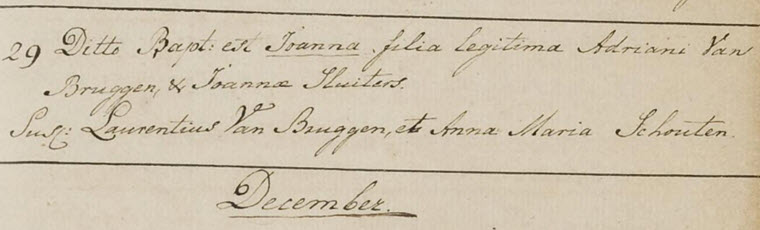 29 Ditto Bapt: est Joanna filia legitima Adriani Van
Bruggen, & Joannæ Sluiters.
Susc: Laurentius Van Bruggen, et Anna Maria Schouten.
December.